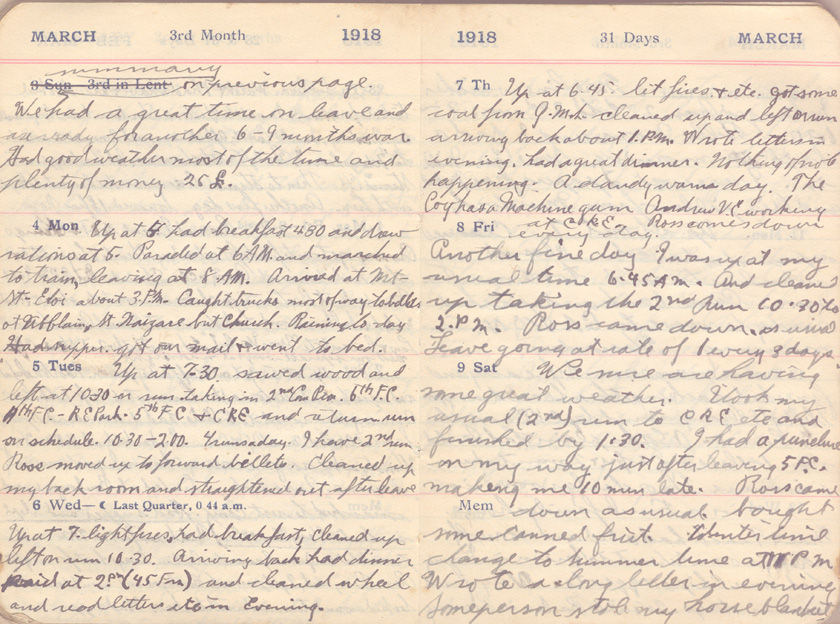 MARCH 3rd Month 1918
summary
3 Sun 3rd in Lent. on previous page.
We had a great time on leave and
are ready for another 6-9 months war.
Had good weather most of the time and
plenty of money 25£.
4 Mon Up at 4 had breakfast 4.30 and draw
rations at 5. Paraded at 6 AM. and marched
to train leaving at 8 AM. Arrived at Mt-
St. Eloi about 3 P.M. Caught trucks most of way to billets
at St Nazare but Church. Raining to day
Had supper. got our mail & went to bed.
5 Tues Up at 7.30 sawed wood and
left at 10.30 on run. taking in 2nd 6th F.C.
4th F.C. - R E Park. 5th F C & C R E and return run
on schedule. 10.30-2.00. 4 runs a day. I have 2nd run
Ross moved up to forward billets. Cleaned up
my back room and straightened out after leave
6 Wed— ☾ Last Quarter, 0 44 a.m.
Up at 7. light fires, had breakfast, cleaned up
left on run 10.30. Arriving back had dinner
paid at 2 (45 Frs) and cleaned wheel
and read letters etc in Evening.
1918 31 Days MARCH
7 Th Up at 6.45 lit fires & etc. got some
coal from Q.M.S. cleaned up and left on run
arriving back about 1. P.M. Wrote letters in
evening. had a great dinner. Nothing of note
happening. A dandy warm day. The
Coy has a Machine gun Andrew V.E working
8 Fri at C.R.E. Ross comes down
every day.
Another fine day I was up at my
usual time 6.45 A.M. And cleaned
up taking the 2nd Run 10.30 to
2. P.M. Ross came down. as usual
Leave going at rate of 1 every 3 days
9 Sat We are having
some great weather. I took my
usual (2nd) run to C R E etc and
finished by 1.30. I had a puncture
on my way just after leaving 5 F.C.
making me 10 min late. Ross came
Mem down as usual. bought
some canned fruit. time
change to summer time at 11 P M
Wrote a long letter in evening
Some person stole my horse blanket